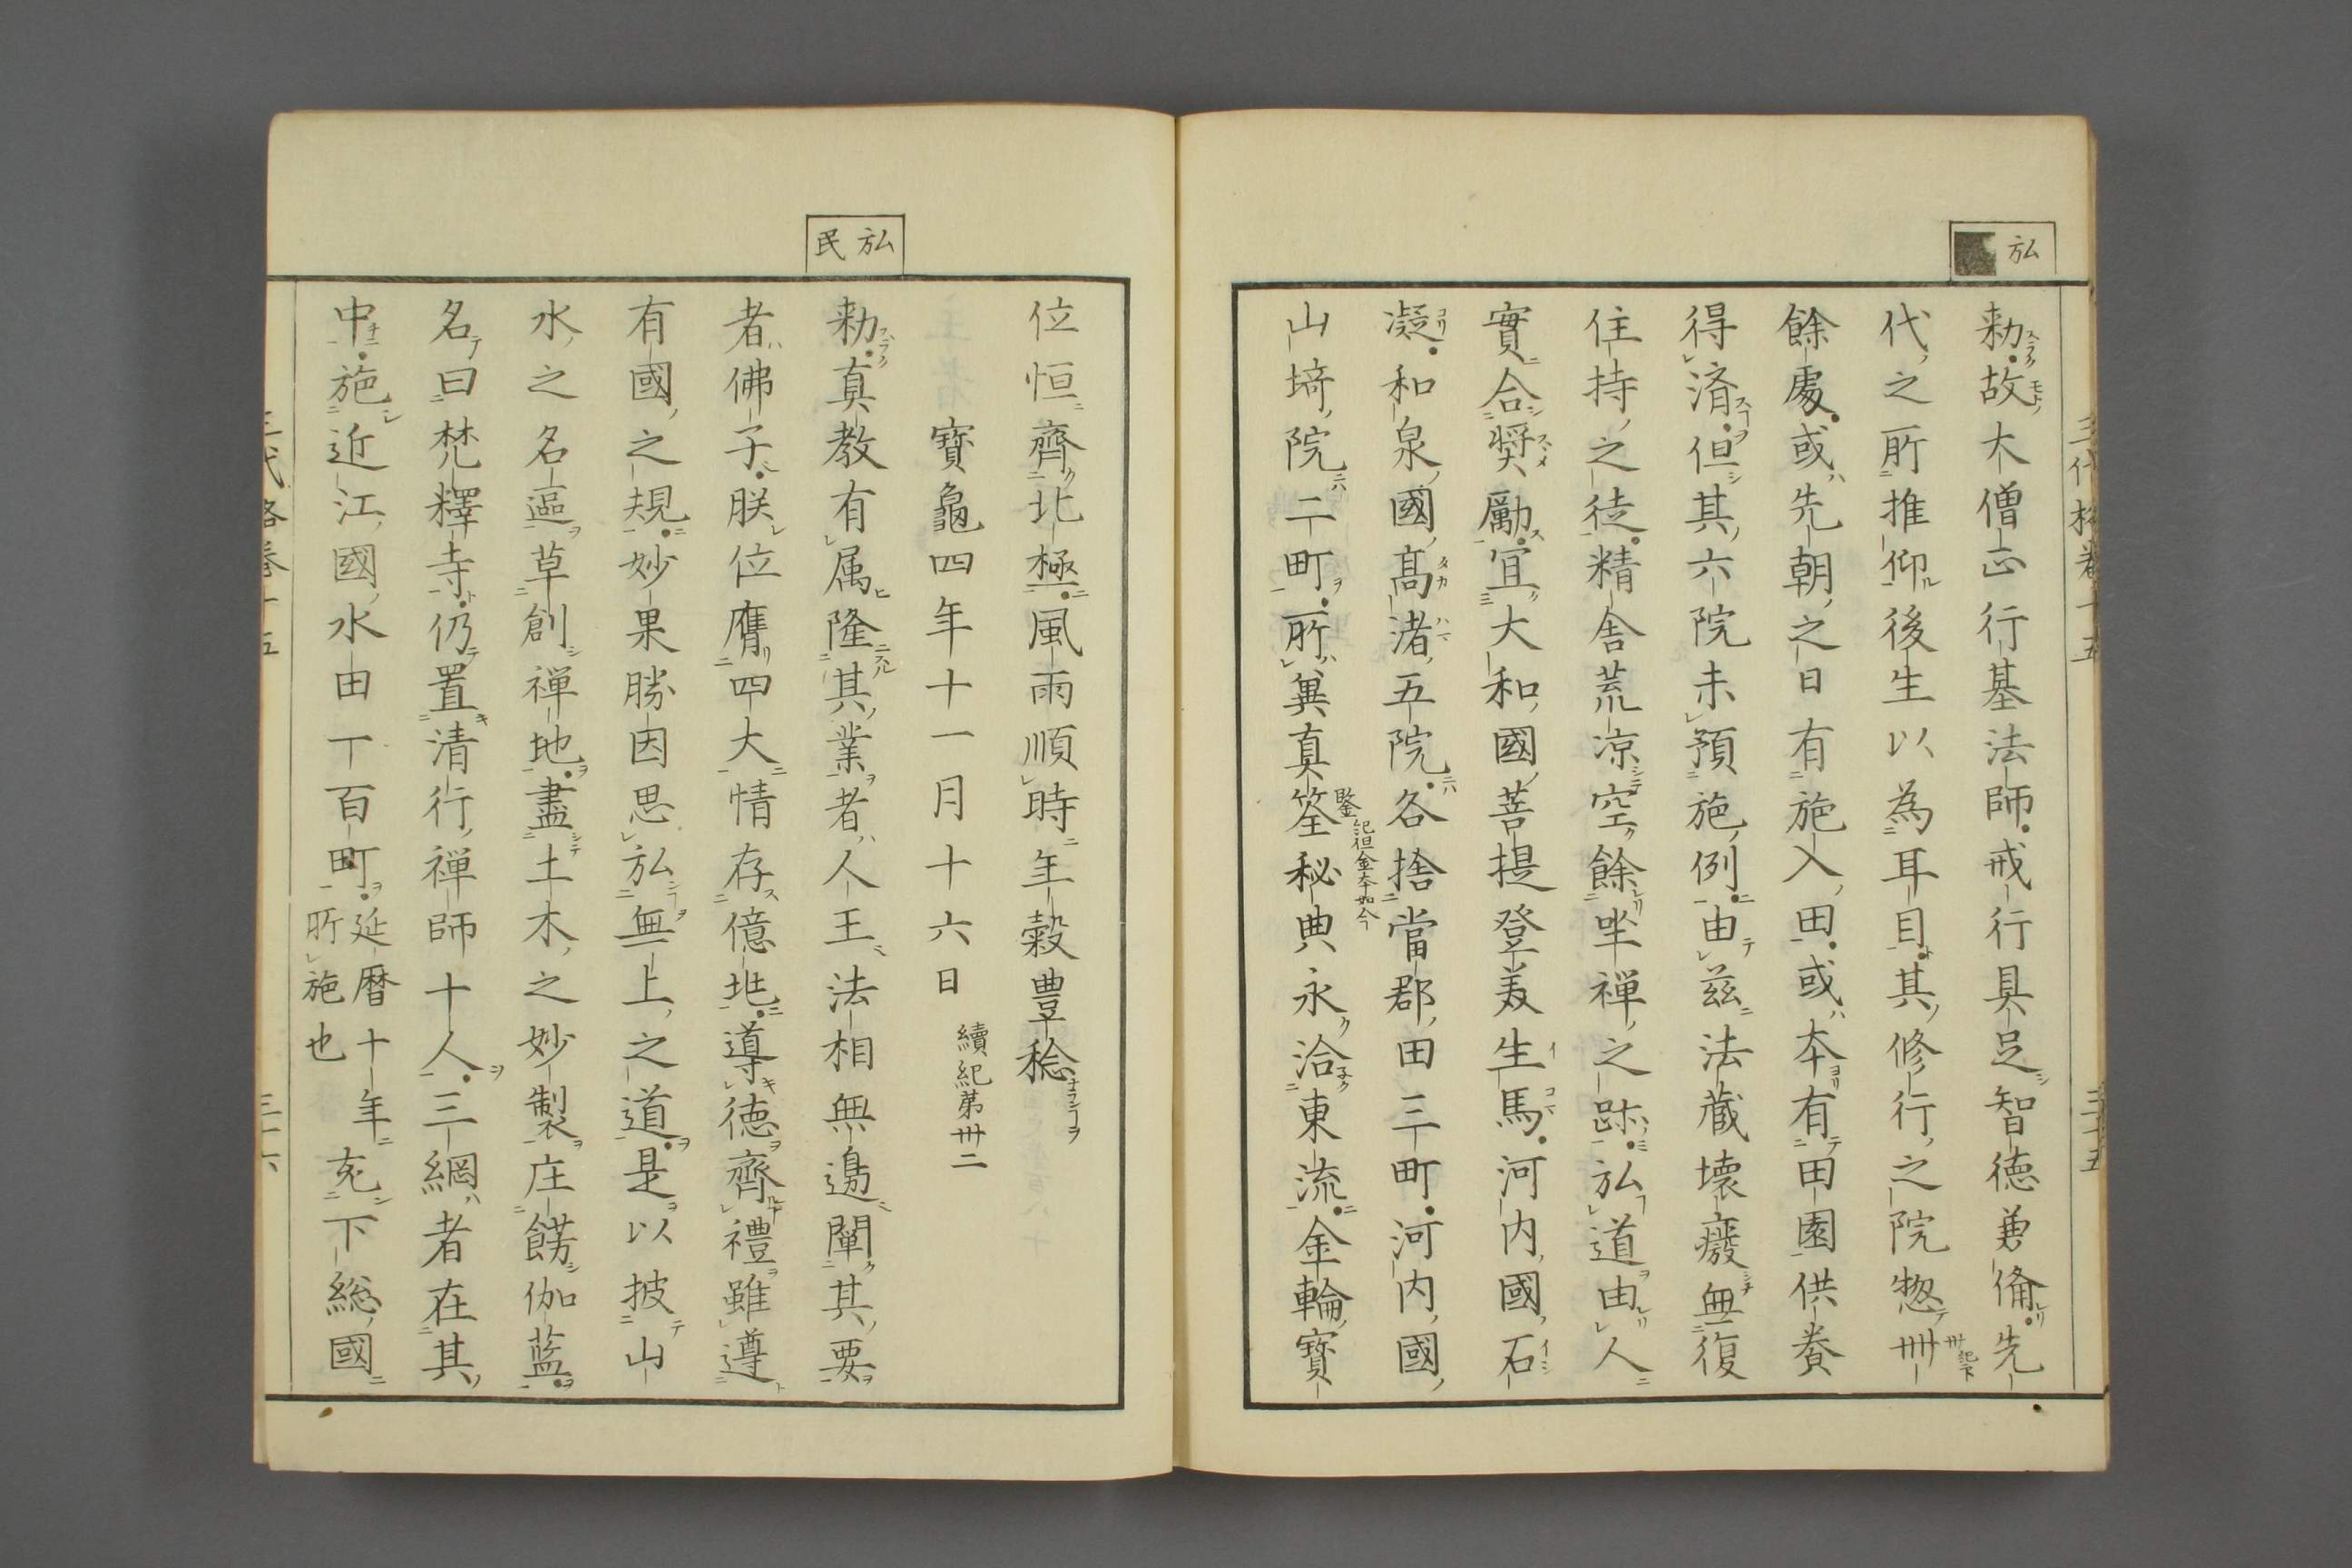 弘
勅故大僧正行基法師戒行具足智徳兼備先
代之所推仰後生以為耳目其修行之院惣卌
卌紀下
餘處或先朝之日有施入田或本有田園供養
得濟但其六院未預施例由茲法蔵壊廢無復
住持之徒精舎荒凉空餘坐禅之跡弘道由人
實合奨勵宜大和國菩提登美生馬河内國石
凝和泉國髙渚五院各捨當郡田三町河内國
鑒紀但金本如今
山埼院二町所兾真筌秘典永洽東流金輪寳
三代格巻十五
三十五
位恒齊北極風雨順時年穀豊稔
寳龜四年十一月十六日
續紀第卅二
弘民
勅真教有属隆其業者人王法相無邊闡其要
者佛子朕位膺四大情存億兆導徳齊禮雖遵
有國之規妙果勝因思弘無上之道是以披山
水之名區草創禅地盡土木之妙製庄餝伽藍
名曰梵釋寺仍置清行禅師十人三綱者在其
中施近江國水田一百町
延暦十年
所施也
充下総國
三代格巻十五
三十六